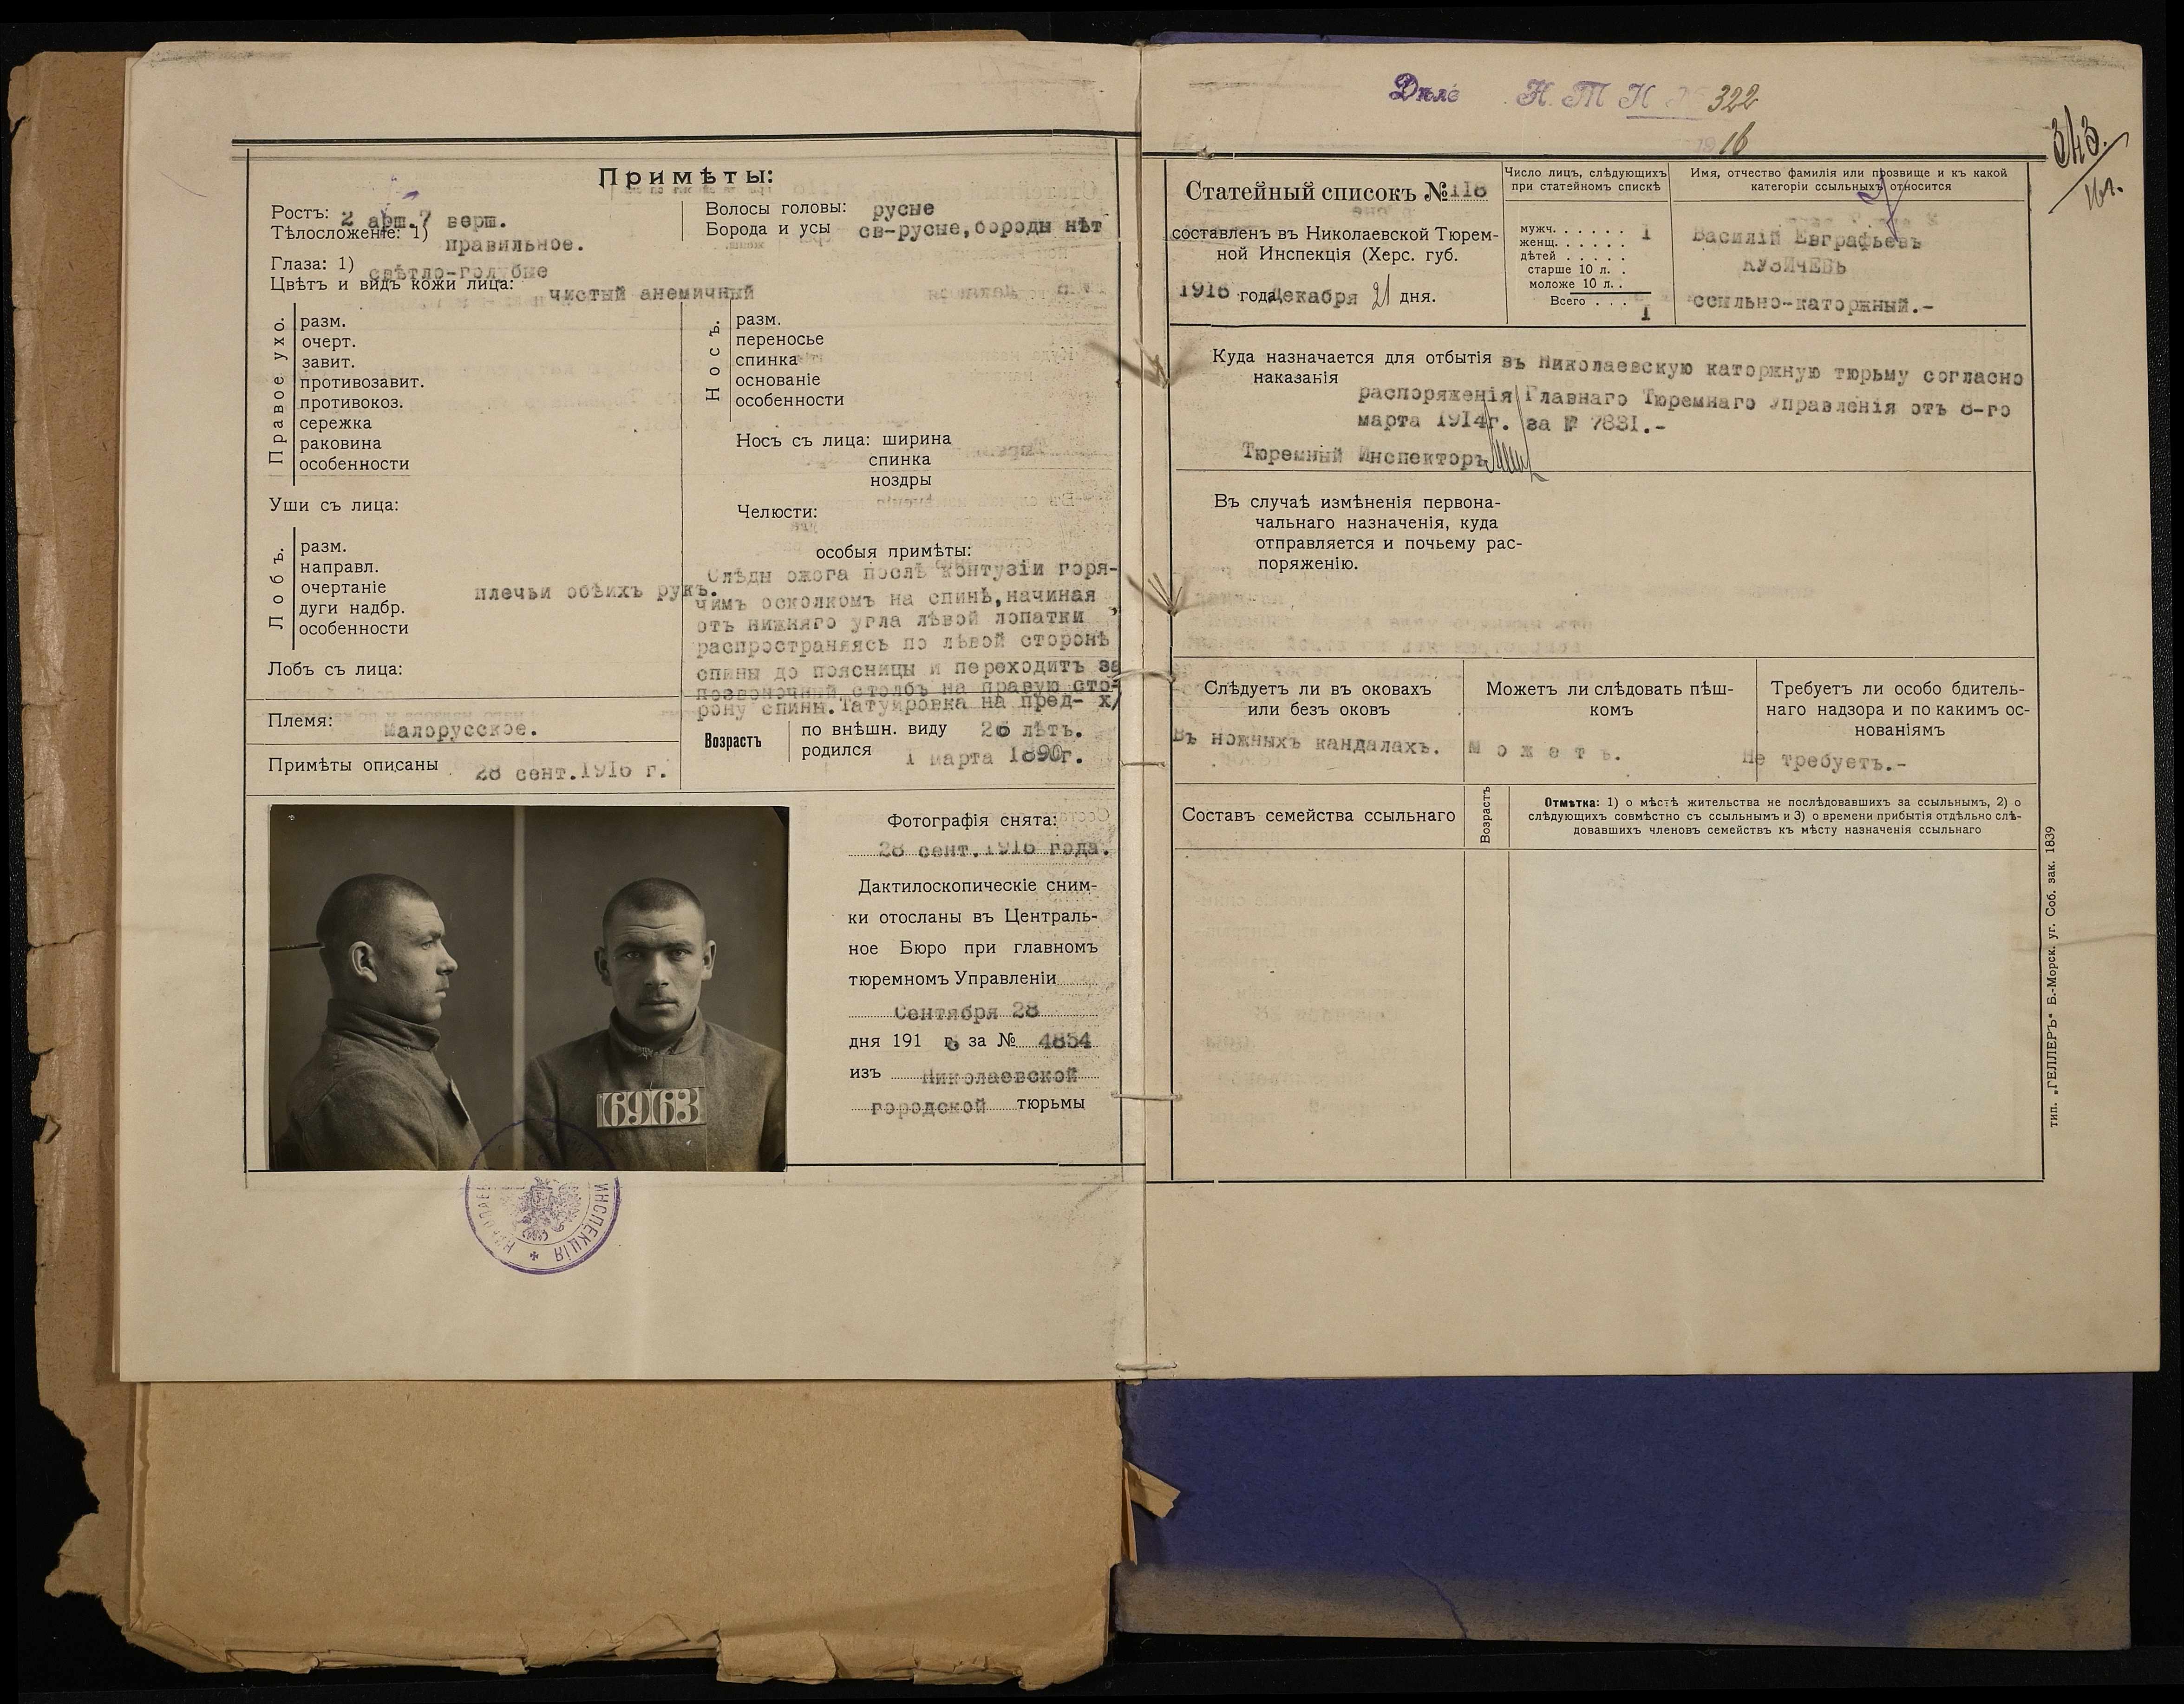 Примѣты:
Ростъ: 2 арш.7 верш.
Тѣлосложеніе: 1) правильное.
Глаза: 1) свѣтло-голубые
Цвѣтъ и видъ кожи лица: чистый анемичный
Волосы головы: русые
Борода и усы св-русые,бороды нѣт
Правое ухо.
разм.
очерт.
завит.
противозавит.
противокоз.
сережка
раковина
особенности
Носъ.
разм.
переносье
спинка
основаніе
особенности
Носъ съ лица: ширина
спинка
ноздры
Уши съ лица:
Челюсти:
Лобъ.
разм.
направл.
очертаніе
дуги надбр.
особенности
Лобъ съ лица:
особыя примѣты:
Слѣды ожога послѣ контузіи горя-
чимъ осколкомъ на спинѣ,начиная
отъ нижняго угла лѣвой лопатки ,
распространяясь по лѣвой сторонѣ
спины до поясницы и переходитъ за
позвоночный столбъ на правую сто-
рону спины.Татуировка на пред- х/
плечьи обѣихъ рукъ.
Племя: Малорусское.
Примѣты описаны 28 сент.1916 г.
Возрастъ
по внѣшн. виду 26 лѣтъ.
родился 1 марта 1890г.
Фотографія снята:
28 сент.1916 года.
Дактилоскопическіе сним-
ки отосланы въ Централь-
ное Бюро при главномъ
тюремномъ Управленіи
Сентября 28
дня 191 6 г. за № 4854
изъ Николаевской
городской тюрьмы
6963
ИНСПЕКЦІЯ
Дѣло Н. Т. И № 322
1916
343.
16 г.
Статейный списокъ № 118
составленъ въ Николаевской Тюрем-
ной Инспекція (Херс. губ.
1916 года Декабря 21 дня.
Число лицъ, слѣдующихъ
при статейномъ спискѣ
мужч. . . . . . 1
женщ. . . . . .
дѣтей . . . . .
старше 10 л. .
моложе 10 л. .
Всего . . . 1
Имя, отчество фамилія или прозвище и къ какой
категоріи ссыльныхъ относится
Василій Евграфьевъ
КУЗИЧЕВЪ
ссыльно-каторжный.-
Куда назначается для отбытія
наказанія
въ Николаевскую каторжную тюрьму согласно
распоряженія Главнаго Тюремнаго Управленія отъ 8-го
марта 1914г. за № 7831.-
Тюремный Инспекторъ
Въ случаѣ измѣненія первона-
чальнаго назначенія, куда
отправляется и почьему рас-
поряженію.
Слѣдуетъ ли въ оковахъ
или безъ оковъ
Въ ножныхъ кандалахъ.
Можетъ ли слѣдовать пѣш-
комъ
М о ж е т ъ.
Требуетъ ли особо бдитель-
наго надзора и по какимъ ос-
нованіямъ
Не требуетъ.-
Составъ семейства ссыльнаго
Возрастъ
Отмѣтка: 1) о мѣстѣ жительства не послѣдовавшихъ за ссыльнымъ, 2) о
слѣдующихъ совмѣстно съ ссыльнымъ и 3) о времени прибытія отдѣльно слѣ-
довавшихъ членовъ семействъ къ мѣсту назначенія ссыльнаго
тип. „ГЕЛЛЕРЪ“ Б.-Морск. уг. Соб. зак. 1839